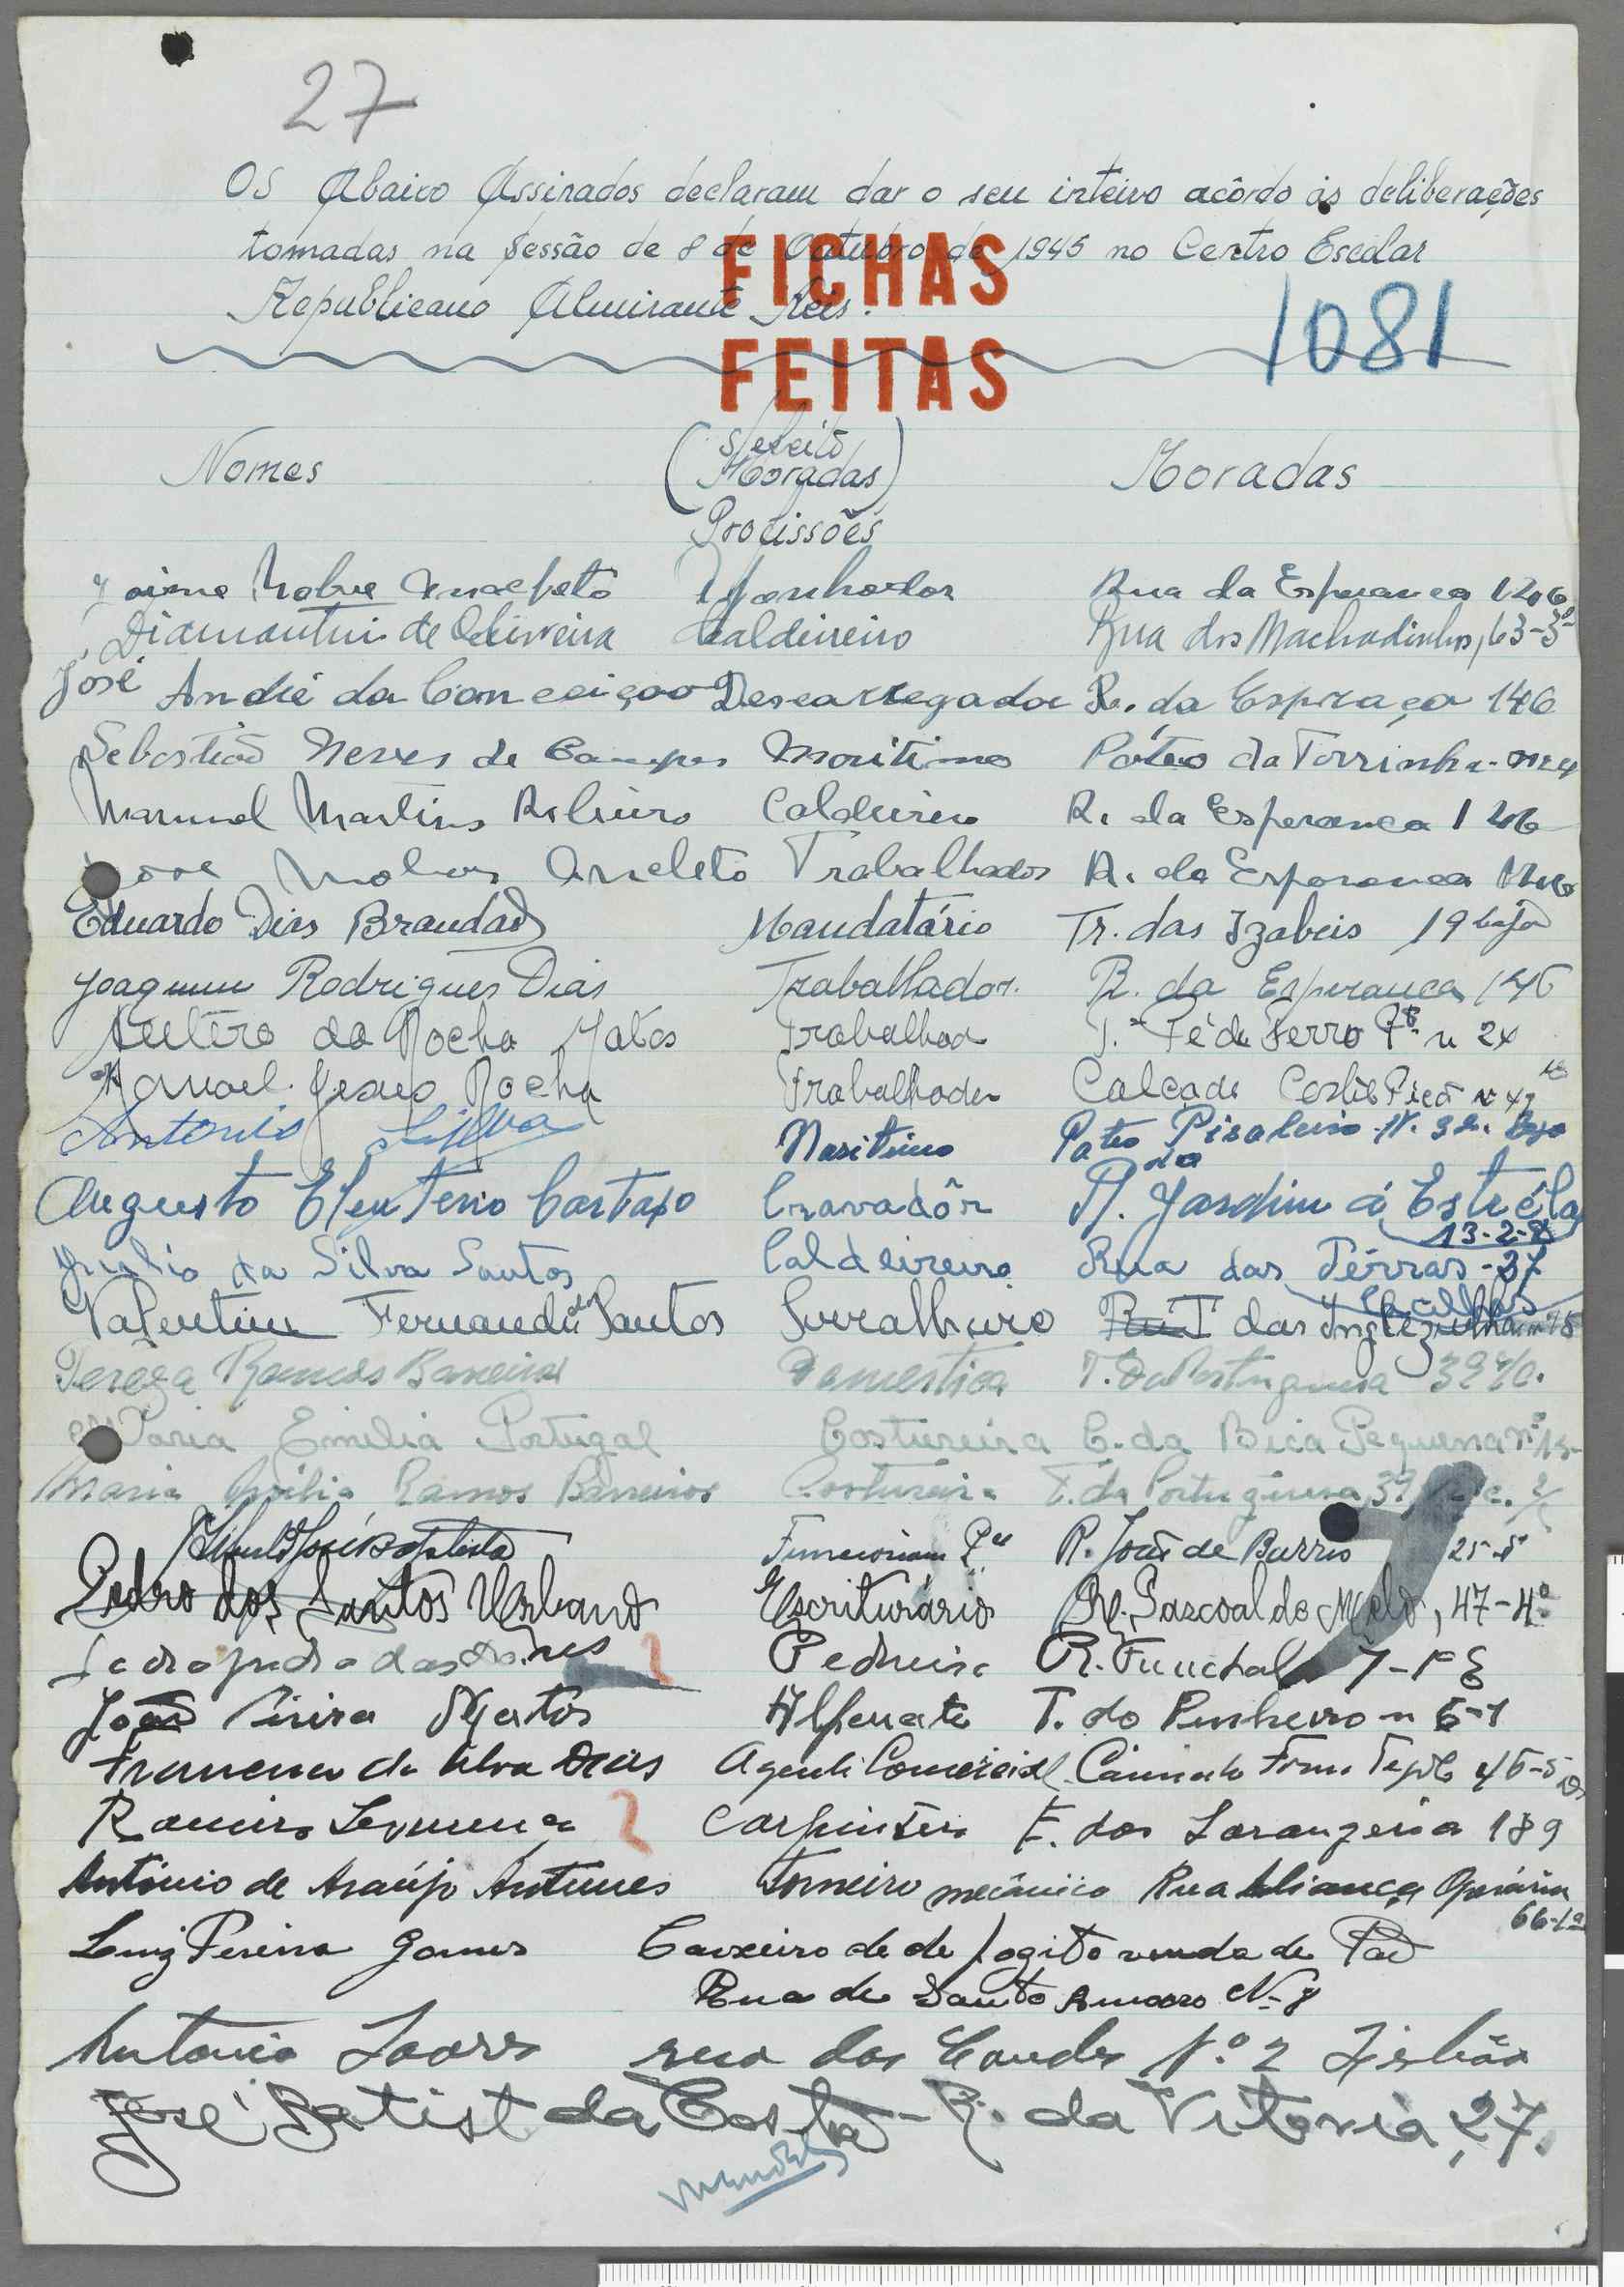 27
OS Abaixo Assinados declaram dar o seu inteiro acôrdo ás deliberações
tomadas na Sessão de 8 de Outubro de 1945 no Centro Escolar
Republicano Almirante Reis.
FICHAS
FEITAS
1081
Nomes (S/efeito Moradas) Moradas
Profissões
Jaime Nobre Anacleto Rua da Esperança 146
Diamantino de Oliveira Caldeireiro Rua dos Machadinhos, 63-3º
José André da Conceição Descarregador R. da Espiraça 146
Sebastião Neves de Campos Maritimo Páteo da Torrinha
Manuel Martins Ribeiro Caldeireiro R. da Esperança 146
Anacleto Trabalhador R. da Esperança 146
Eduardo Dias Brandão Mandatário Tr. das Izabeis 19
Joaquim Rodrigues Dias Trabalhador. R. da Esperança 146
da Rocha Matos Trabalhad T. Pé de Ferro
Manoel Jesus Rocha Trabalhador Calçada
Antonio Silva Maritimo Pateo N. 32.
Augusto Eleuterio Cartaxo Cravadôr da P. Jardim á Estréla
13-2-
Julio da Silva Santos Caldeireiro Rua das Térras-37
Valentim Fernandes dos Santos Serralheiro T das Inglezinhas
Tereza Ramos Barreiros Domestica T. da Portuguesa 39
Maria Emilia Portugal Costureira C. da Bica Pequena nº 15-
Maria Ramos Barreiros Costureira T. da Portuguesa, 39
José Baptista R. João de Barros 25
Pedro dos Santos Urbano Escriturário R. Pascoal de Melo, 47-4º
Pedreiro R. Funchal 7-1º E
João Matos Alfaiate T. do Pinheiro n 6-1
da Silva Dias Agente Comercial
Ramiro Carpinteiro E. das Laranjeiras 189
António de Araújo Antunes Torneiro mecânico Rua Aliança Operária
66-1º
Luiz Pereira Gomes Caixeiro de venda de Pão
Rua de Santo Amaro N-8
Antonio rua das Nº 2 Lisbôa
José Batist da Costa - R. da Vitoria, 27.